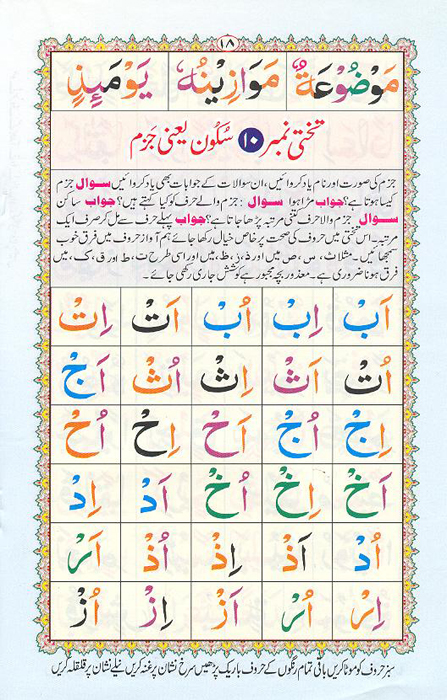 ۱۸
مَوْضُوْعَةٌ مَوَازِيْنُهٗ يَوْمَئِذٍ
تختی نمبر ۱۰ سُکُون یعنی جَزم
جزم کی صورت اور نام یاد کروائیں، ان سوالات کے جوابات بھی یاد کروائیں سوال جزم
کیسا ہوتا ہے؟ جواب مڑا ہوا سوال: جزم والے حرف کو کیا کہتے ہیں؟ جواب ساکن
سوال جزم والا حرف کتنی مرتبہ پڑھا جاتا ہے؟ جواب پہلے حرف سے مل کر صرف ایک
مرتبہ۔ اس تختی میں حروف کی صحت پر خاص خیال رکھا جائے ہم آواز حروف میں فرق خوب
سمجھائیں۔ مثلا ث، س، ص میں اور ذ، ز، ظ، میں اور اسی طرح ت، ط اور ق، ک، میں
فرق ہونا ضروری ہے۔ معذور بچہ مجبور ہے کوشش جاری رکھی جائے۔
اَبْ اِبْ اُبْ اَتْ اِتْ
اُتْ اَثْ اِثْ اُثْ اَجْ
اِجْ اُجْ اَحْ اِحْ اُحْ
اَخْ اِخْ اُخْ اَدْ اِدْ
اُدْ اَذْ اِذْ اُذْ اَرْ
اِرْ اُرْ اَزْ اِزْ اُزْ
سبز حروف کو موٹا کریں باقی تمام رنگوں کے حروف باریک پڑھیں سرخ نشان پر غنہ کریں نیلے نشان پر قلقلہ کریں